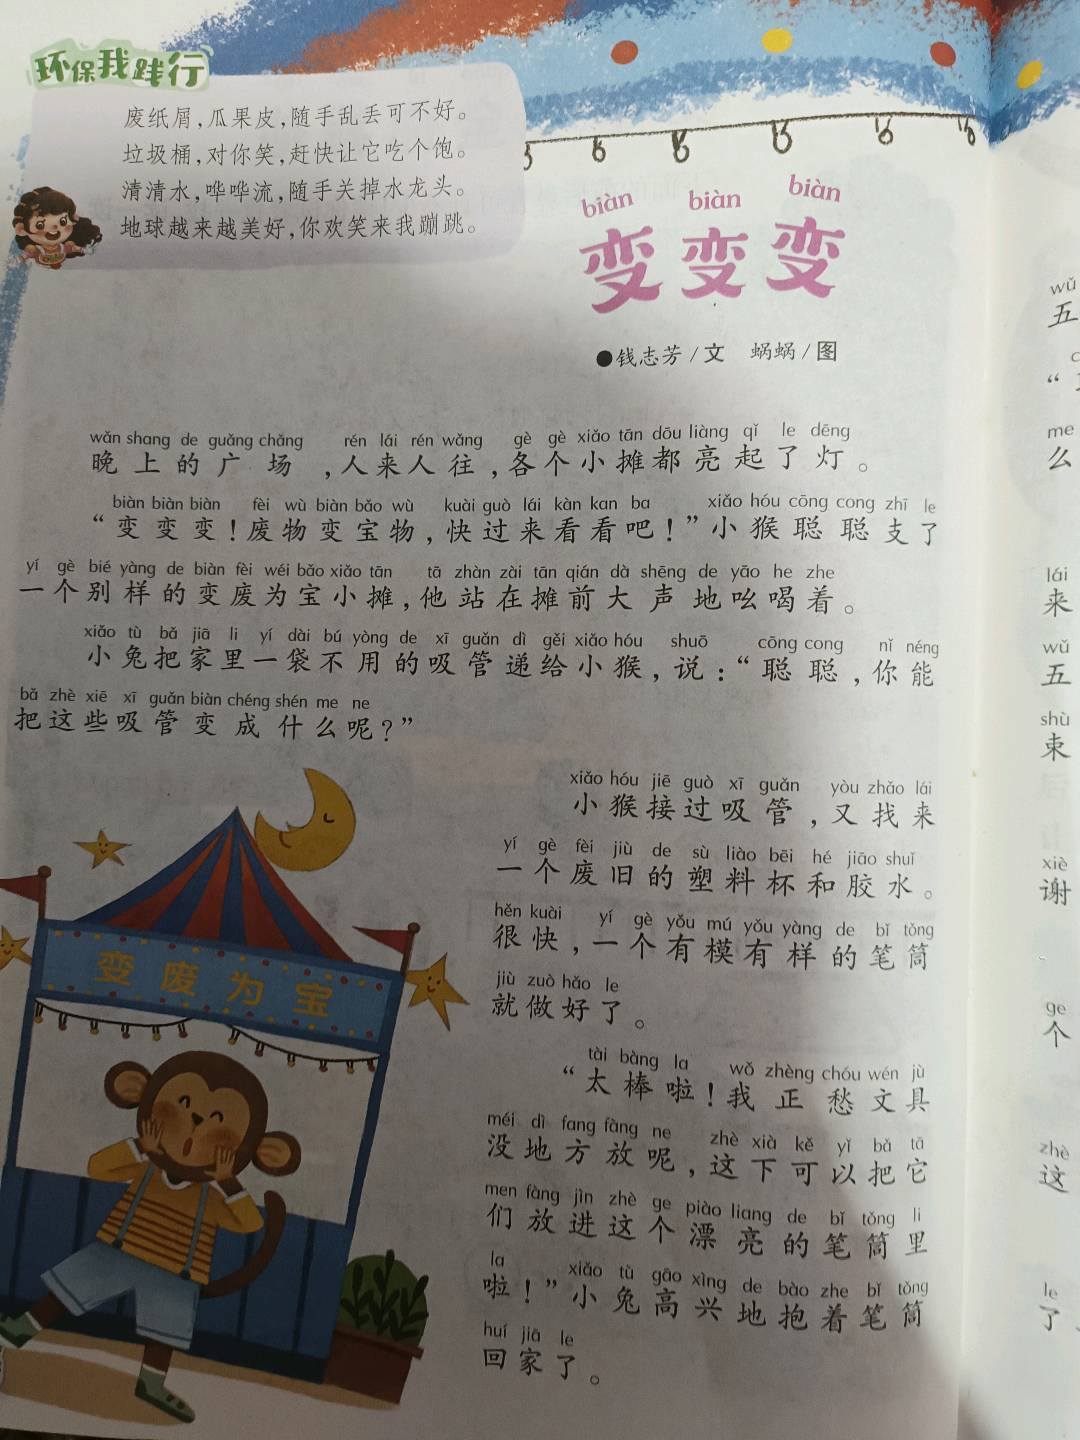 环保我践行
废纸屑,瓜果皮,随手乱丢可不好。
垃圾桶,对你笑,赶快让它吃个饱。
清清水,哗哗流,随手关掉水龙头。
地球越来越美好,你欢笑来我蹦跳。
biàn biàn biàn
变变变
●钱志芳/文 蜗蜗/图
wǎn shang de guǎng chǎng rén lái rén wǎng gè gè xiǎo tān dōu liàng qǐ le dēng
晚上的广场,人来人往,各个小摊都亮起了灯。
biàn biàn biàn fèi wù biàn bǎo wù kuài guò lái kàn kan ba xiǎo hóu cōng cong zhī le
“变变变!废物变宝物,快过来看看吧!”小猴聪聪支了
yí gè bié yàng de biàn fèi wéi bǎo xiǎo tān tā zhàn zài tān qián dà shēng de yāo he zhe
一个别样的变废为宝小摊,他站在摊前大声地吆喝着。
xiǎo tù bǎ jiā li yí dài bú yòng de xī guǎn dì gěi xiǎo hóu shuō cōng cong nǐ néng
小兔把家里一袋不用的吸管递给小猴,说:“聪聪,你能
bǎ zhè xiē xī guǎn biàn chéng shén me ne
把这些吸管变成什么呢?”
xiǎo hóu jiē guò xī guǎn yòu zhǎo lái
小猴接过吸管,又找来
yí gè fèi jiù de sù liào bēi hé jiāo shuǐ
一个废旧的塑料杯和胶水。
hěn kuài yí gè yǒu mú yǒu yàng de bǐ tǒng
很快,一个有模有样的笔筒
jiù zuò hǎo le
就做好了。
tài bàng la wǒ zhèng chóu wén jù
“太棒啦!我正愁文具
méi dì fang fàng ne zhè xià kě yǐ bǎ tā
没地方放呢,这下可以把它
men fàng jìn zhè ge piào liang de bǐ tǒng li
们放进这个漂亮的笔筒里
la xiǎo tù gāo xìng de bào zhe bǐ tǒng
啦!”小兔高兴地抱着笔筒
huí jiā le
回家了。
变废为宝
wǔ
五
“
me
么
lái
来
wǔ
五
shù
束
xiè
谢
ge
个
zhè
这
le
了